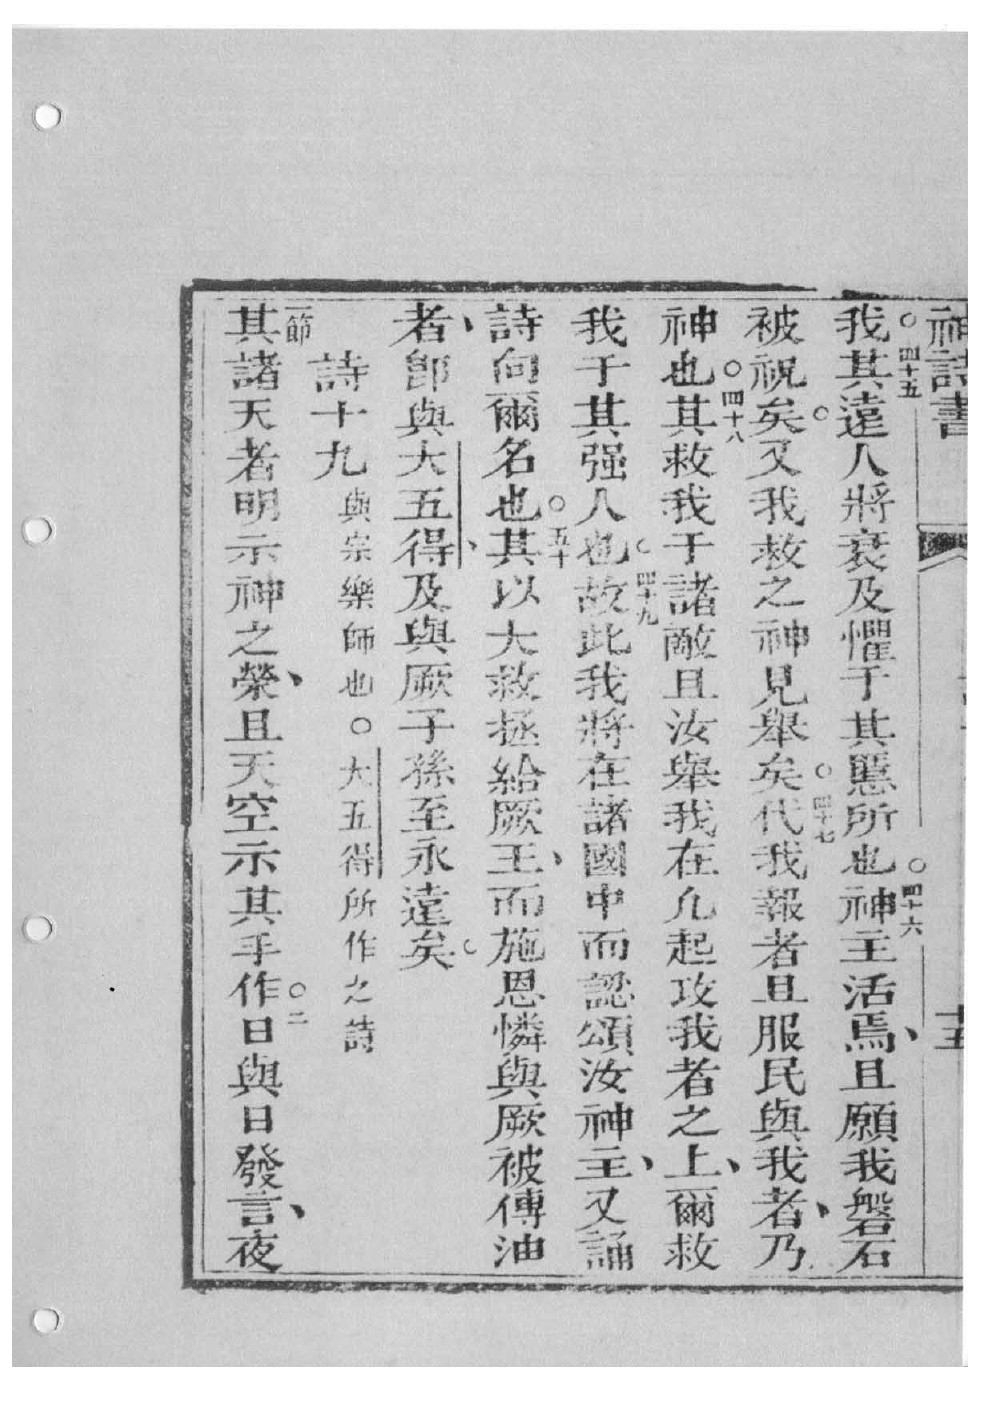 神詩書 十五
我○四十五其遠人將衰及懼于其慝所也○四十六神主活焉、且願我磐石
被祝矣○又我救之神見舉矣○四十七代我報者且服民與我者、乃
神也○四十八其救我于諸敵且汝舉我在凡起攻我者之上、爾救
我于其强人也○四十九故此我將在諸國中而認頌汝神主、又誦
詩向爾名也○五十其以大救拯給厥王、而施恩憐與厥被傳油
者、即與大五得、及與厥子孫至永遠矣○
詩十九 與宗樂師也○大五得所作之詩
一節其諸天者明示神之榮、且天空示其手作○二日與日發言、夜